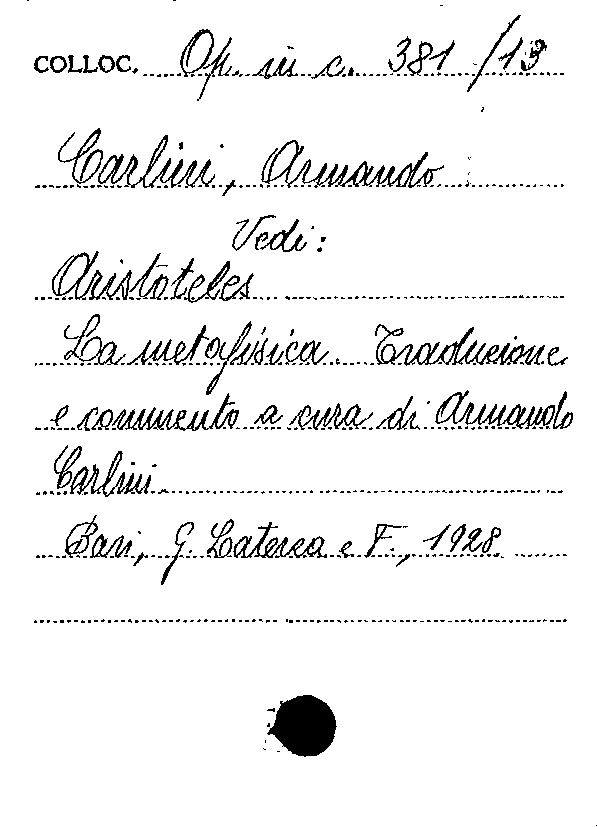 COLLOC. Op. in c. 381 /13
Carlini, Armando
Vedi:
Aristoteles
La metafisica. Traduzione
e commento a cura di Armando
Carlini.
Bari, G. Laterza e F., 1928.